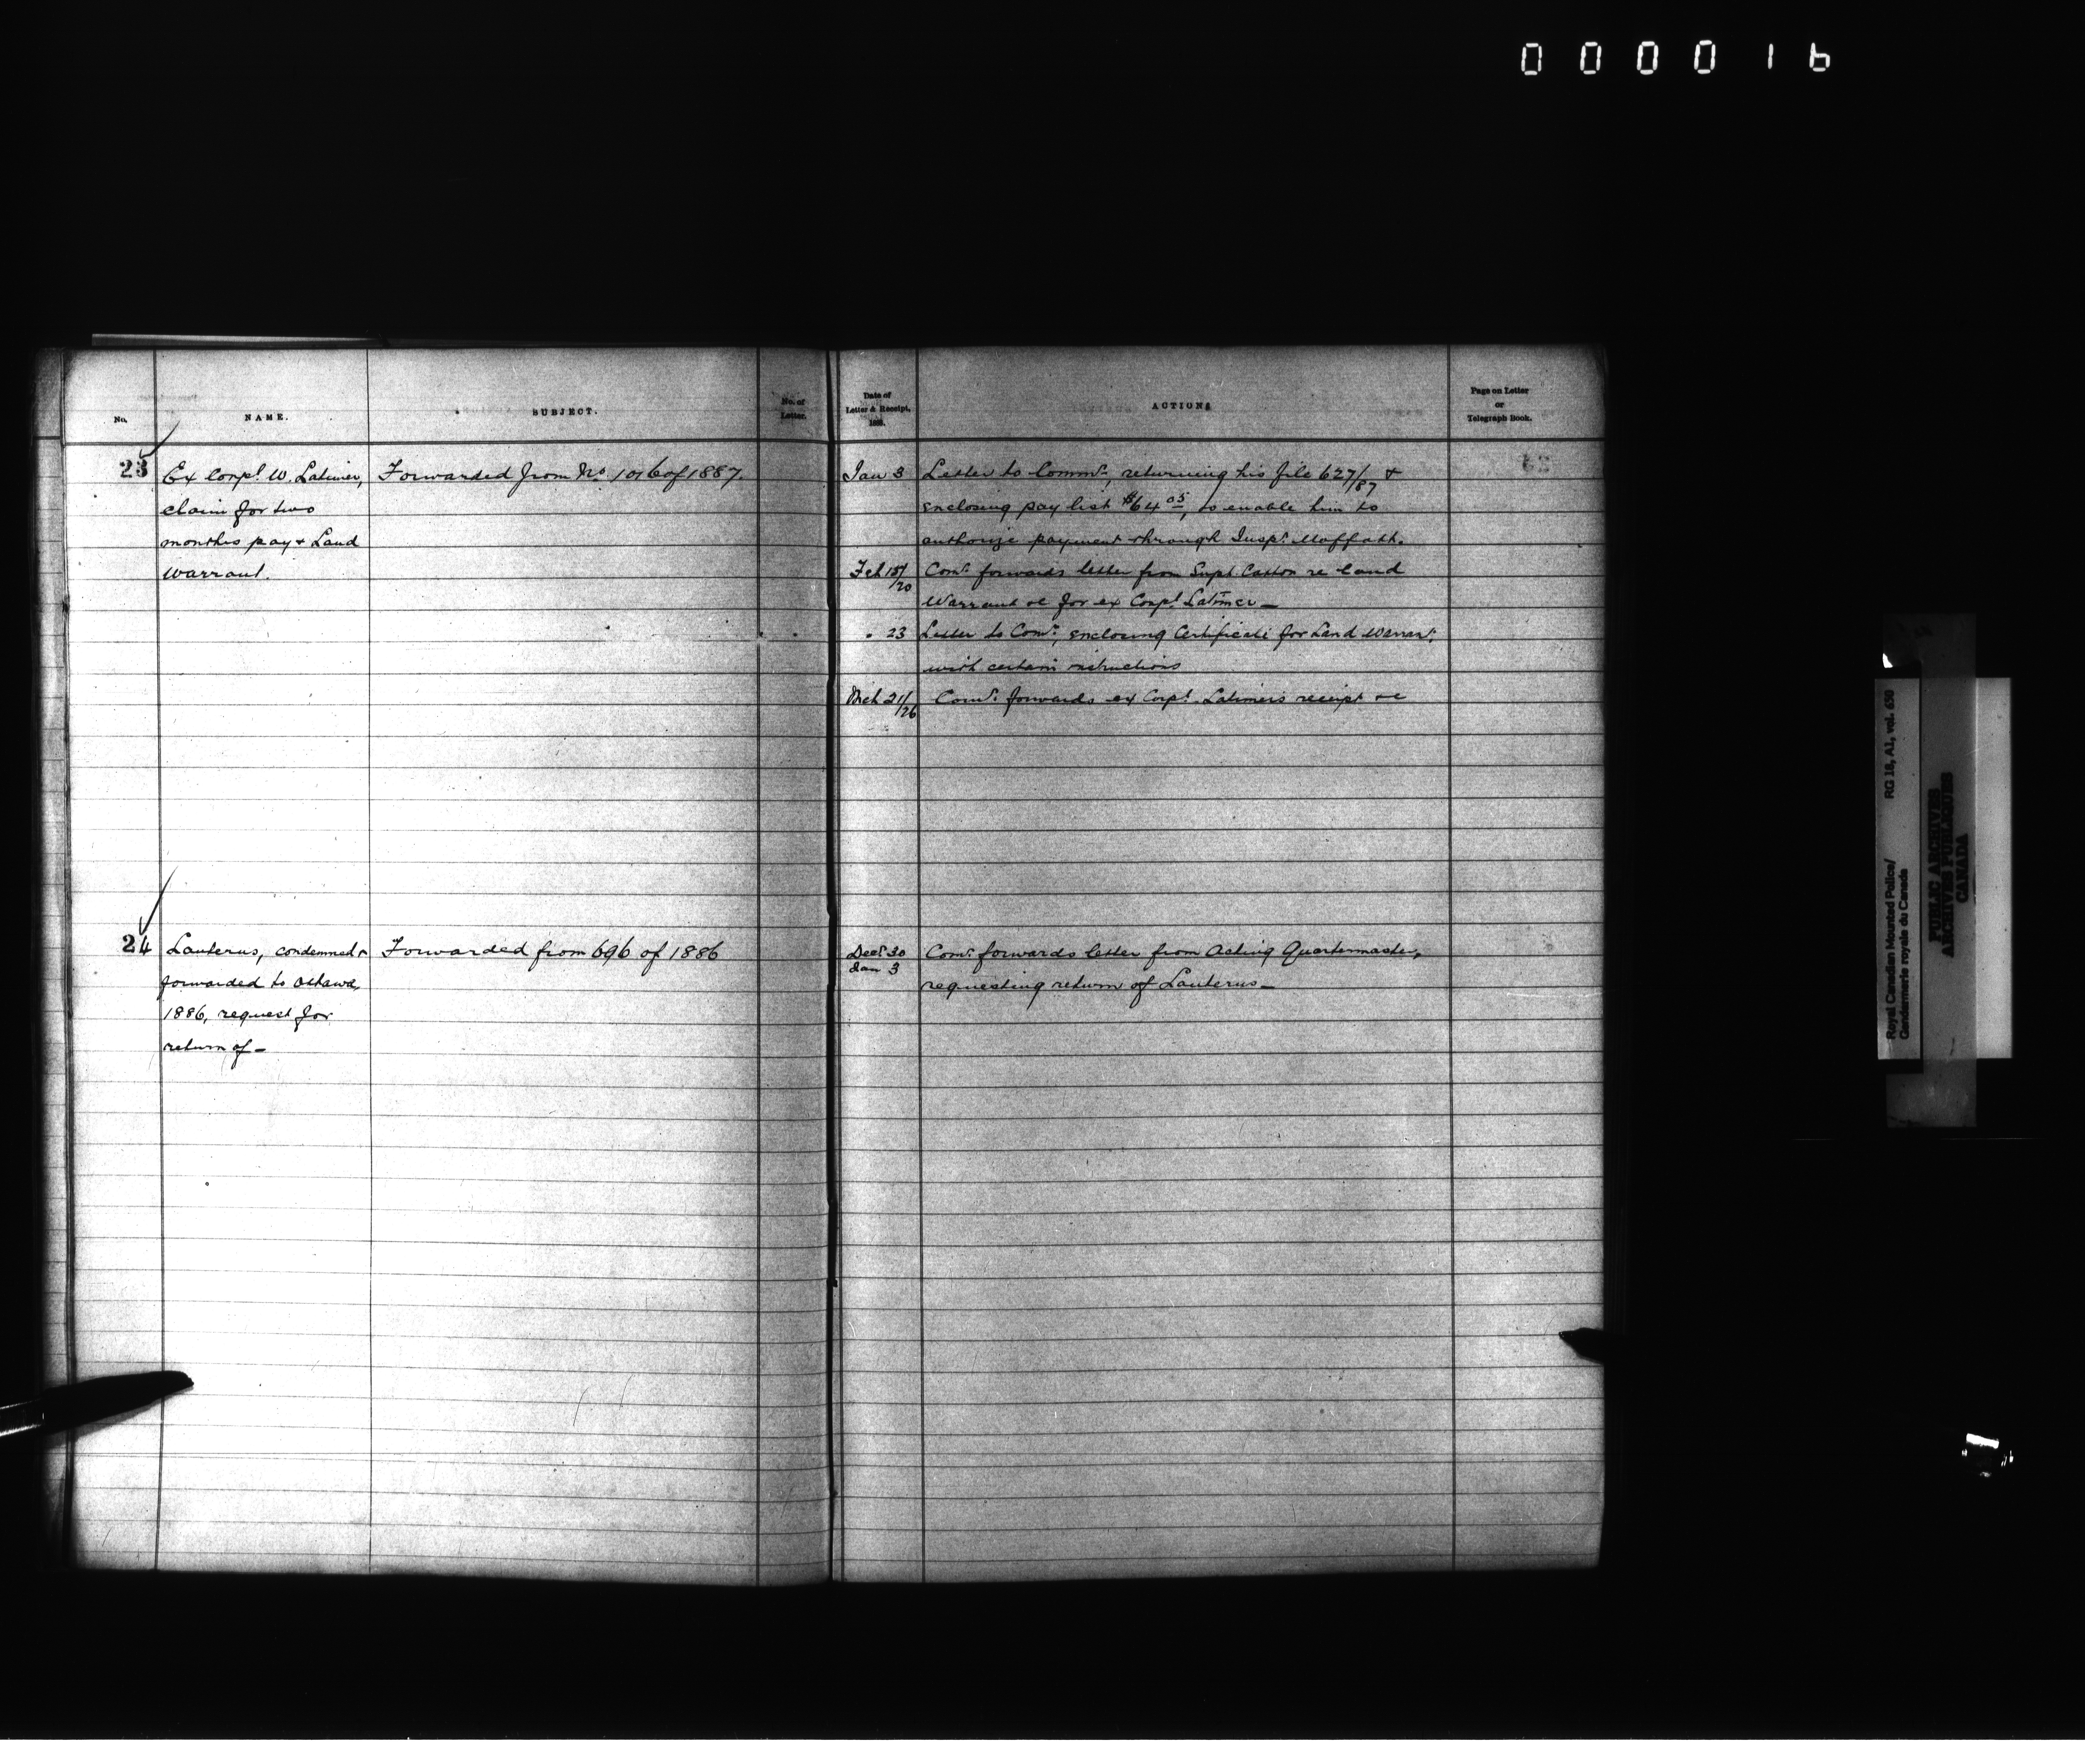 0 0 0 0 1 6
No.
NAME.
SUBJECT.
No. of
Letter.
Date of
Letter & Receipt,
188 .
ACTION
Page on Letter
or
Telegraph Book.
23 Ex Corpl. W. Latimer, Forwarded from No 1016 of 1887.
claim for two
months pay & Land
Warrant.
Jan 3 Letter to Commr, returning his file 627/87 &
enclosing pay list $64 05, to enable him to
authorize payment through Inspr. Moffatt.
Feb 15/20 Comr. forwards letter from Supt. Cotton re land
Warrant &c for ex Corpl. Latimer –
" 23 Letter to Comr., enclosing Certificate for Land Warrant.
with certain instructions
Mch 21/26 Comr. forwards ex Corpl. Latimers receipt &c
24 Lanterns, condemned & Forwarded from 696 of 1886
forwarded to Ottawa,
1886, request for
return of –
Decr. 30
Jan 3
Comr. forwards letter from Acting Quartermaster,
requesting return of Lanterns –
Royal Canadian Mounted Police/ RG 18, A1, vol. 650
Gendarmerie royale du Canada
PUBLIC ARCHIVES
ARCHIVES PUBLIQUES
CANADA